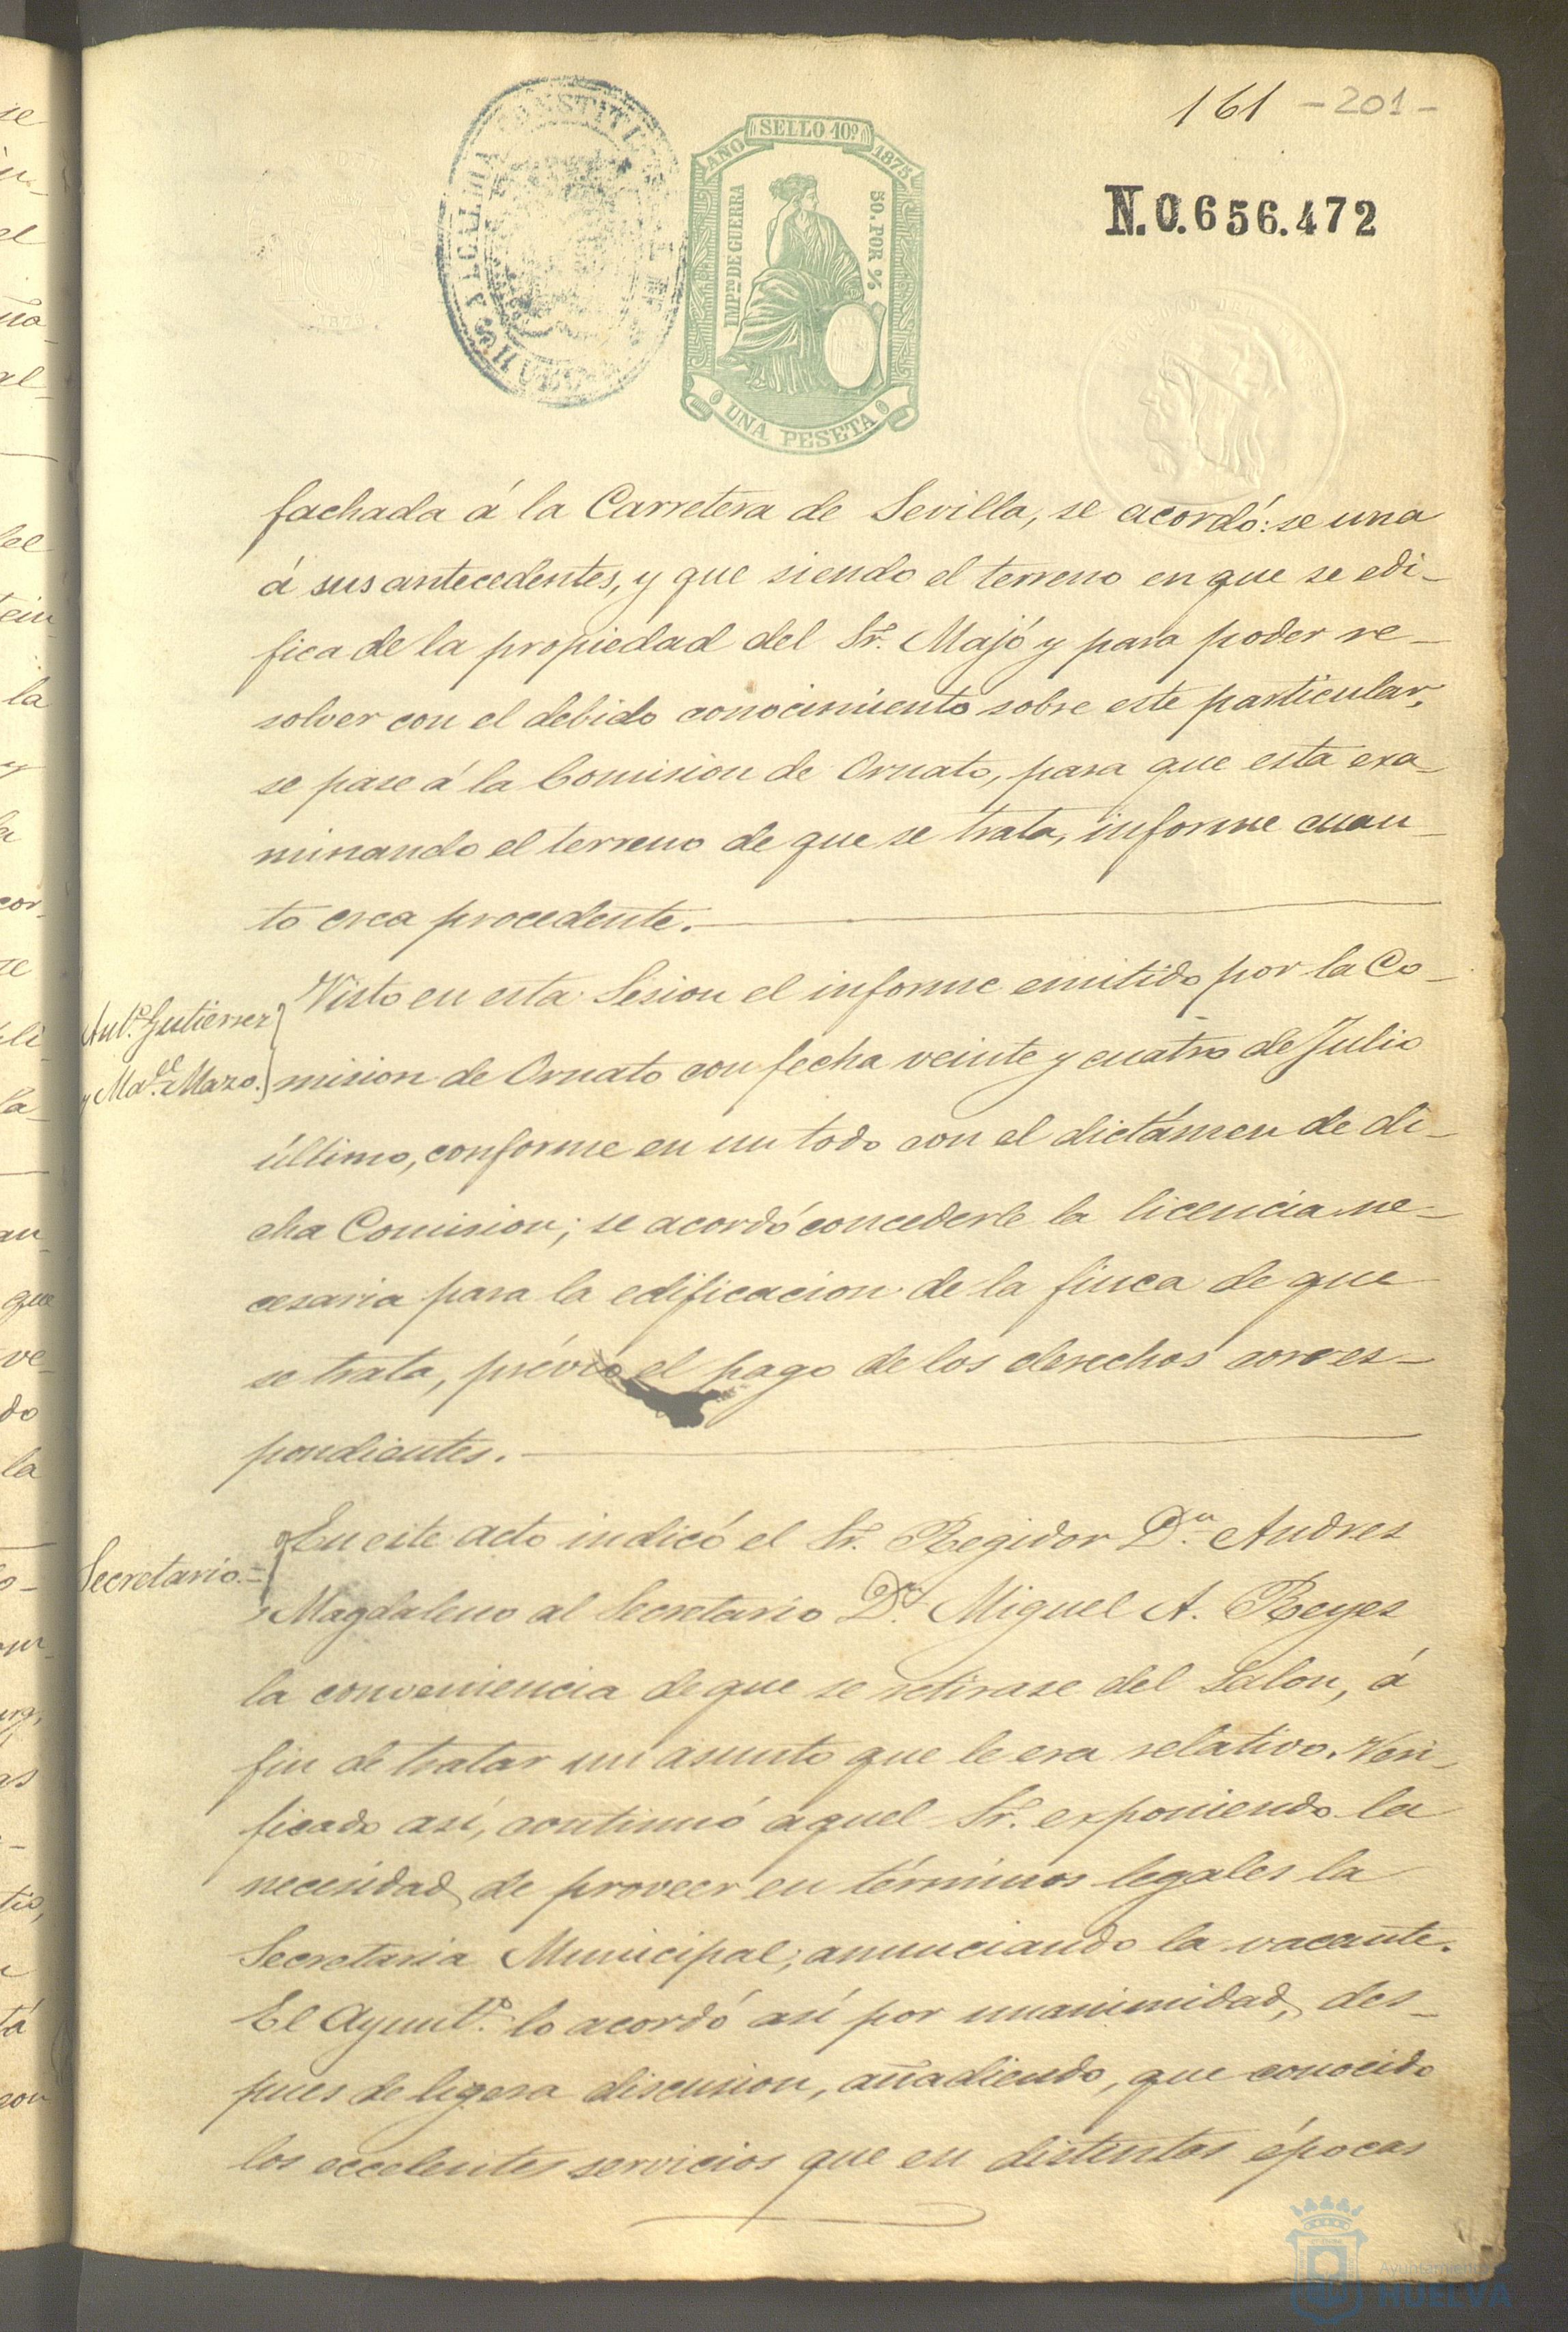 161 - 201 -
ALCALDIA CONSTITU
HUELVA
SELLO 10º
AÑO 1875
IMPTO DE GUERRA
50. POR %
UNA PESETA
N.0.656.472
fachada á la Carretera de Sevilla, se acordó: se una
á sus antecedentes, y que siendo el terreno en que se edi-
fica de la propiedad del Sr. Majó y para poder re-
solver con el debido conocimiento sobre este particular,
se pase á la Comision de Ornato, para que esta exa-
minando el terreno de que se trata, informe cuan-
to crea procedente.
Antº. Gutierrez
y Mal. Mazo.
Visto en esta Sesion el informe emitido por la Co-
mision de Ornato con fecha veinte y cuatro de Julio
último, conforme en un todo con el dictámen de di-
cha Comision; se acordó concederle la licencia ne-
cesaria para la edificacion de la finca de que
se trata, prévio el pago de los derechos corres-
pondientes.
Secretario.=
En este acto indicó el Sr. Regidor Dn. Andres
Magdaleno al Secretario Dn. Miguel A. Reyes
la conveniencia de que se retirase del Salon, á
fin de tratar un asunto que le era relativo. Veri-
ficado así, continuó aquel Sr. exponiendo la
necesidad de proveer en términos legales la
Secretaria Municipal, anunciando la vacante.
El Ayuntº. lo acordó así por unanimidad, des-
pues de ligera discusion, añadiendo, que conocido
los eccelentes servicios que en distintas épocas
Ayuntamiento
HUELVA